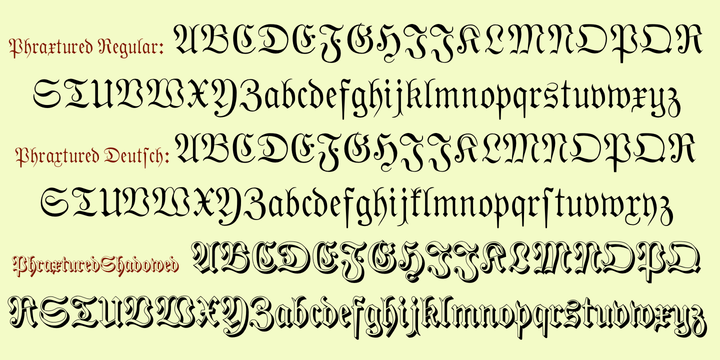 Phraxtured Regular: ABCDEFGHIJKLMNOPQR
STUVWXYZabcdefghijklmnopqrstuvwxyz
Phraxtured Deutſch: ABCDEFGHIJKLMNOPQR
STUVWXYZabcdefghijklmnopqrſtuvwxyz
PhraxturedShadowed ABCDEFGHIJKLMNOPQ
RSTUVWXYZabcdefghijklmnopqrstuvwxyz